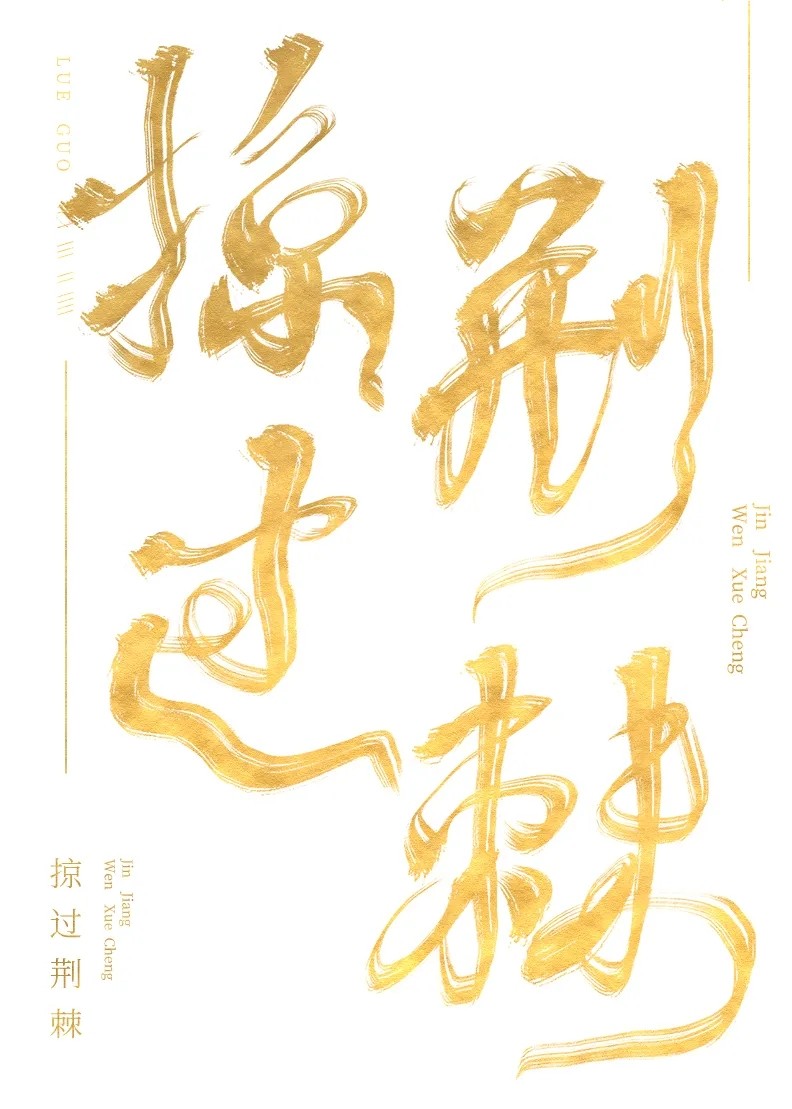 掠过
荆棘
LUE GUO
Jin Jiang
Wen Xue Cheng
掠过荆棘
Jin Jiang
Wen Xue Cheng